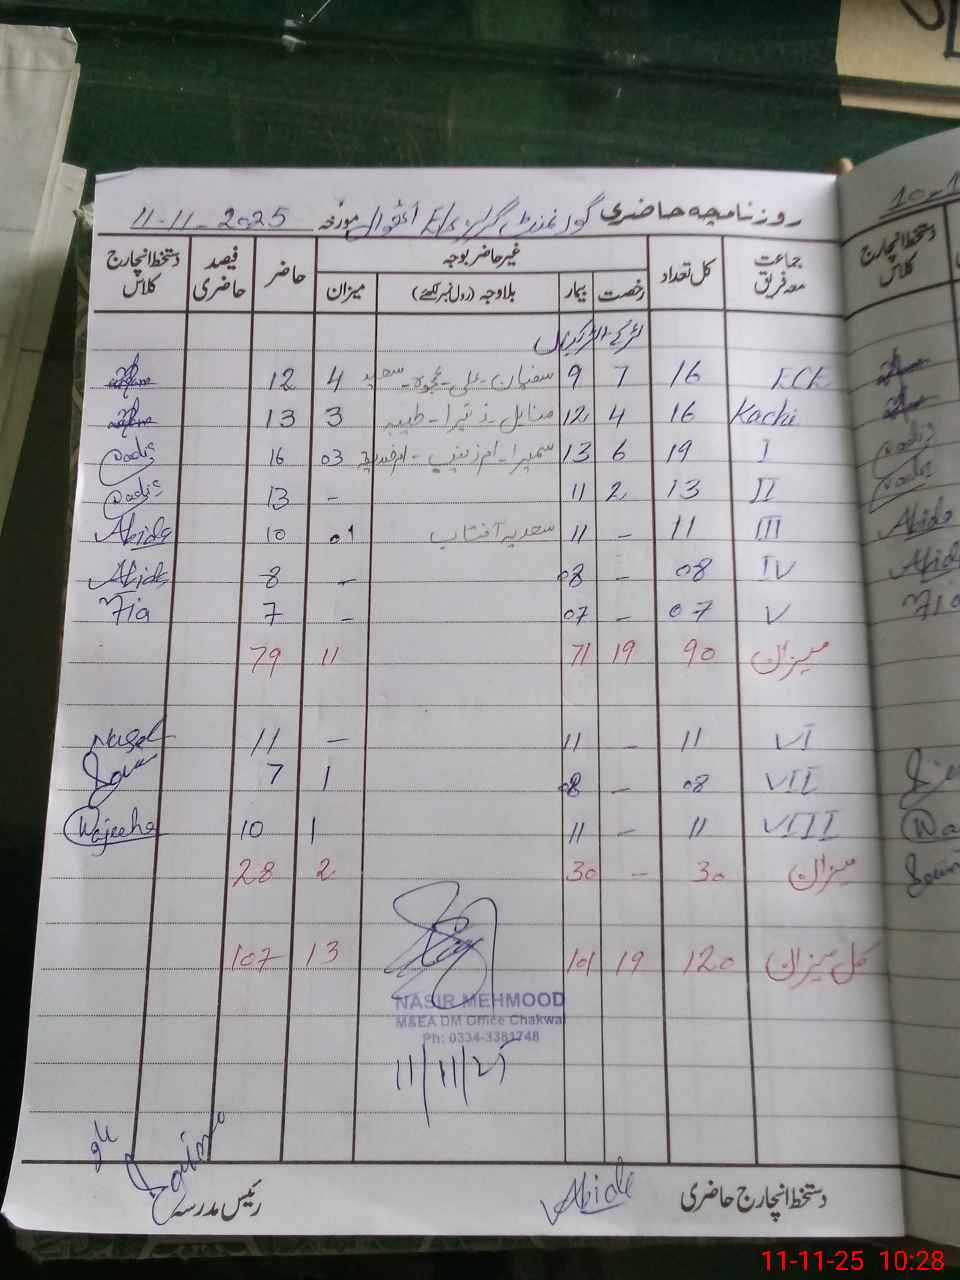 روزنامچہ حاضری گورنمنٹ گرلز E/s اعوال مورخہ 11-11-2025
جماعت معہ فریق کل تعداد غیر حاضر بوجہ حاضر فیصد حاضری دستخط انچارج کلاس
رخصت بیمار بلاوجہ (رول نمبر لکھئے) میزان
لڑکے + لڑکیاں
ECE 16 7 9 سفیان - علی - عجوہ - سعید 4 12
Kachi 16 4 12 مناہل - زنیرا - طیبہ 3 13
I 19 6 13 سمیرا - ام زینب - ام خدیجہ 03 16 Sadis
II 13 2 11 - 13 Sadis
III 11 - 11 سعدیہ آفتاب 01 10 Abida
IV 08 - 08 - 8 Abida
V 07 - 07 - 7 Fia
میزان 90 19 71 11 79
VI 11 - 11 - 11
VII 08 - 08 1 7
VIII 11 - 11 1 10 Wajeeha
میزان 30 - 30 2 28
کل میزان 120 19 101 13 107
NASIR MEHMOOD
M&EA DM Office Chakwal
Ph: 0334-3381748
11/11/25
Abida
دستخط انچارج حاضری رئیس مدرسہ
10-1
دستخط انچارج کلاس
Sadis
Sadis
Abida
Abida
Fia
Wa
11-11-25 10:28